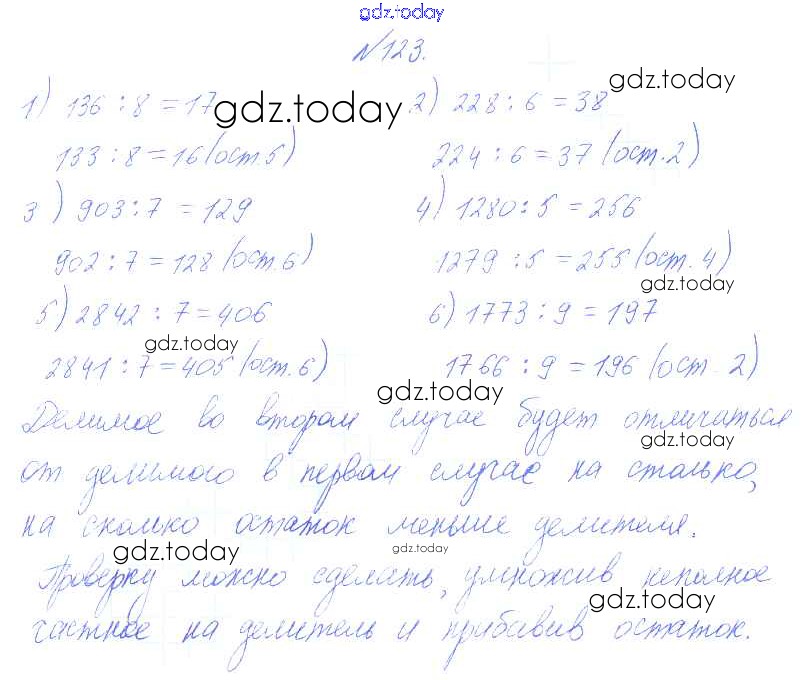 gdz.today
№123.
1) 136 : 8 = 17 gdz.today 2) 228 : 6 = 38
133 : 8 = 16 (ост. 5) 224 : 6 = 37 (ост. 2)
3) 903 : 7 = 129 4) 1280 : 5 = 256
902 : 7 = 128 (ост. 6) 1279 : 5 = 255 (ост. 4)
gdz.today
5) 2842 : 7 = 406 6) 1773 : 9 = 197
gdz.today
2841 : 7 = 405 (ост. 6) 1766 : 9 = 196 (ост. 2)
gdz.today
Делимое во втором случае будет отличаться
gdz.today
от делимого в первом случае на столько,
на сколько остаток меньше делителя.
gdz.today gdz.today
Проверку можно сделать, умножив неполное
gdz.today
частное на делитель и прибавив остаток.